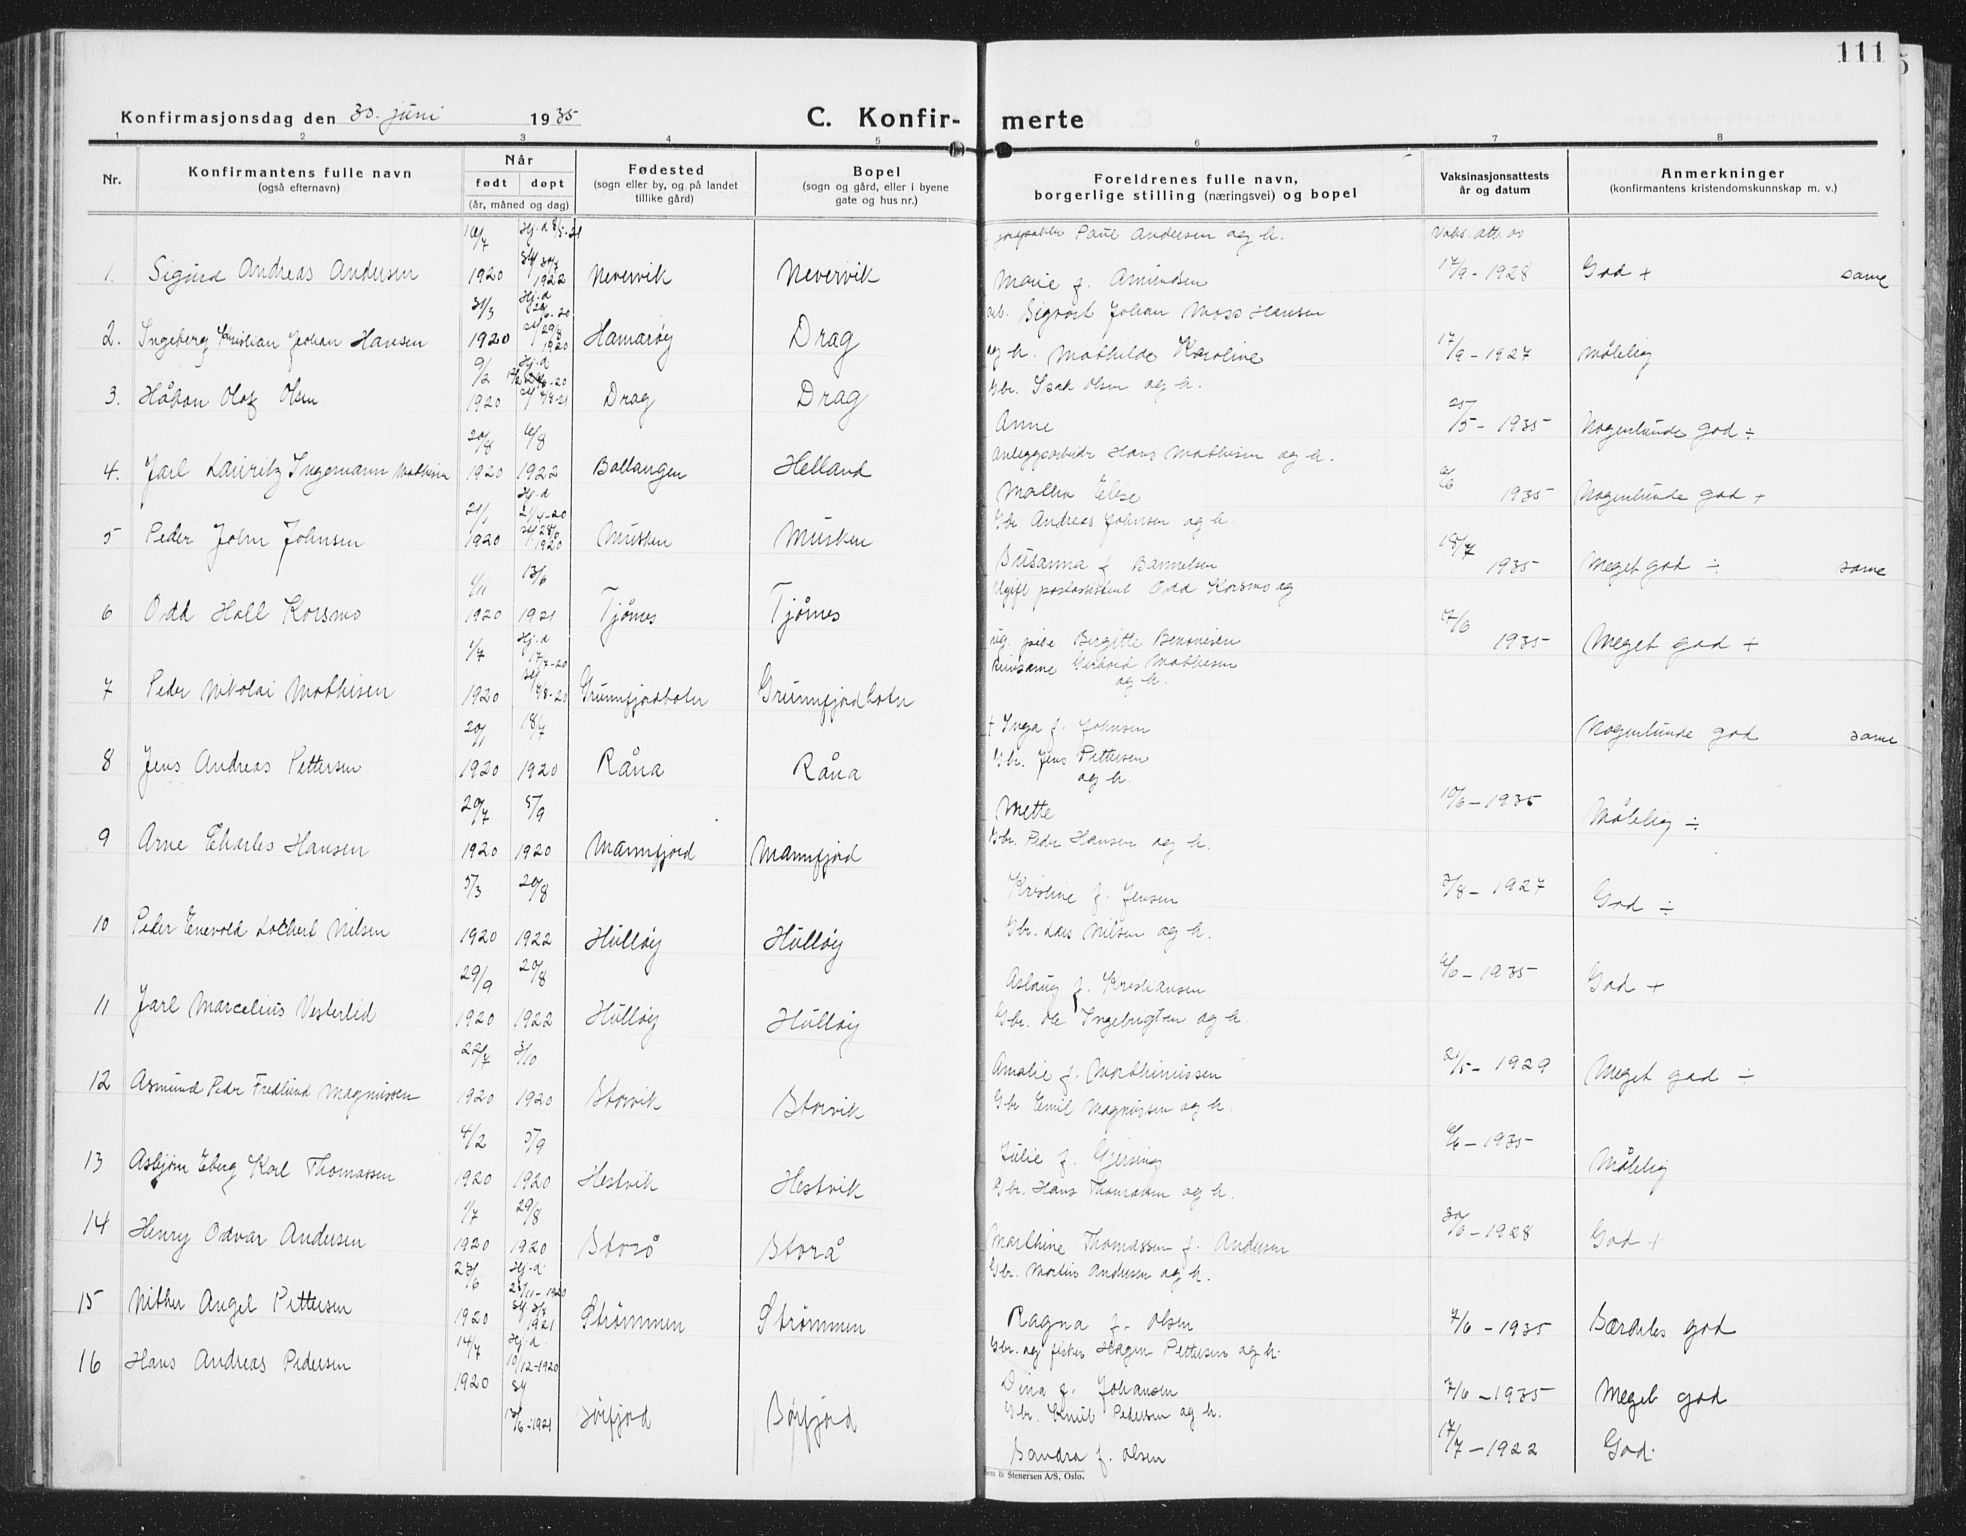 111
Konfirmasjonsdag den 30. juni 1935
C. Konfir- merte
1 2 3 4 5 6 7 8
Nr.
Konfirmantens fulle navn
(også efternavn)
Når
født døpt
(år, måned og dag)
Fødested
(sogn eller by, og på landet
tillike gård)
Bopel
(sogn og gård, eller i byene
gate og hus nr.)
Foreldrenes fulle navn,
borgerlige stilling (næringsvei) og bopel
Vaksinasjonsattests
år og datum
Anmerkninger
(konfirmantens kristendomskunnskap m. v.)
16/7 Hj. d 8/5-21 Paul Andersen og h. Vaks. att. av
1. Sigurd Andreas Andersen 1920 1922 Nevervik Nevervik Marie f. Amundsen 17/9-1928 God + same
31/3 Hj. d Sigvart Johan Moss Hansen
2. Ingeberg Kristian Johan Hansen 1920 1920 Hamarøy Drag og h. Mathilde Karoline 17/9-1927 Målelig
9/2 Hj. d Gbr. Isak Olsen og h.
3. Håkon Olaf Olsen 1920 Drag Drag Anne 25/5-1935 Nogenlunde god ÷
20/8 6/8 Anleggsarbeidr Hans Mathisen og h.
4. Jarl Lauritz Ingemann Mathisen 1920 1922 Ballangen Helland Elise 6/6 1935 Nogenlunde god +
21/1 Hj. d 21/4-20 Gbr. Andreas Johnsen og h.
5 Peder John Johnsen 1920 1920 Musken Musken Susanna f. 18/7 1935 Meget god ÷ same
1/11 13/6 Ugift postassistent Odd Korsmo og
6 Odd Hall Korsmo 1920 1921 Tjårnes Tjårnes ug. pike Birgitte 7/6 1935 Meget god +
1/7 Hj. d 17/7-20 Mathisen og h.
7 Peder Nikolai Mathisen 1920 Grunnfjordbotn Grunnfjordbotn + Inga f. Johnsen Nogenlunde god same
20/1 18/7 Gbr. Jens Pettersen og h.
8 Jens Andreas Pettersen 1920 1920 Råna Råna Mette 10/6-1935 Målelig ÷
20/7 5/9 Gbr. Peder Hansen og h.
9 Arne Charles Hansen 1920 1920 Mannfjord Mannfjord Kristine f. Jensen 7/8-1927 God ÷
5/3 20/8 Gbr. Lars Nilsen og h.
10 Peder Enevold Lockert Nilsen 1920 1922 Hulløy Hulløy Aslaug f. Kristiansen 6/6-1935 God +
29/9 20/8 Gbr. Ole Ingebrigtsen og h.
11 Jarl Marcelius Vesterlid 1920 1922 Hulløy Hulløy Amalie f. Marthinussen 21/5-1929 Meget god ÷
22/7 3/10 Gbr Emil Magnussen og h.
12 Asmund Peder Fredlund Magnussen 1920 1920 Storvik Storvik Julie f. Gjersing 6/6-1935 Målelig
4/2 5/9 Gbr. Hans Thomassen og h.
13 Asbjørn Eberg Karl Thomassen 1920 1920 Hestvik Hestvik Marthine Thomassen f. Andersen 30/6-1928 God +
1/7 29/8 Gbr. Martin Andersen og h.
14 Henry Odvar Andersen 1920 1920 Storå Storå Ragna f. Olsen 7/6-1935 Særdeles god
23/6 Hj. d. 28/11-1920 Gbr. og fisker Hagen Pettersen og h.
15 Angel Pettersen 1920 1921 Strømmen Strømmen Dina f. Johansen 7/6-1935 Meget god
14/7 Hj. d. 10/12-1920 Gbr. Knut Pedersen og h.
16 Hans Andreas Pedersen 1920 -1921 Sørfjord Sørfjord Sandra f. Olsen 17/7-1922 God.
& Stenersen A/S, Oslo.